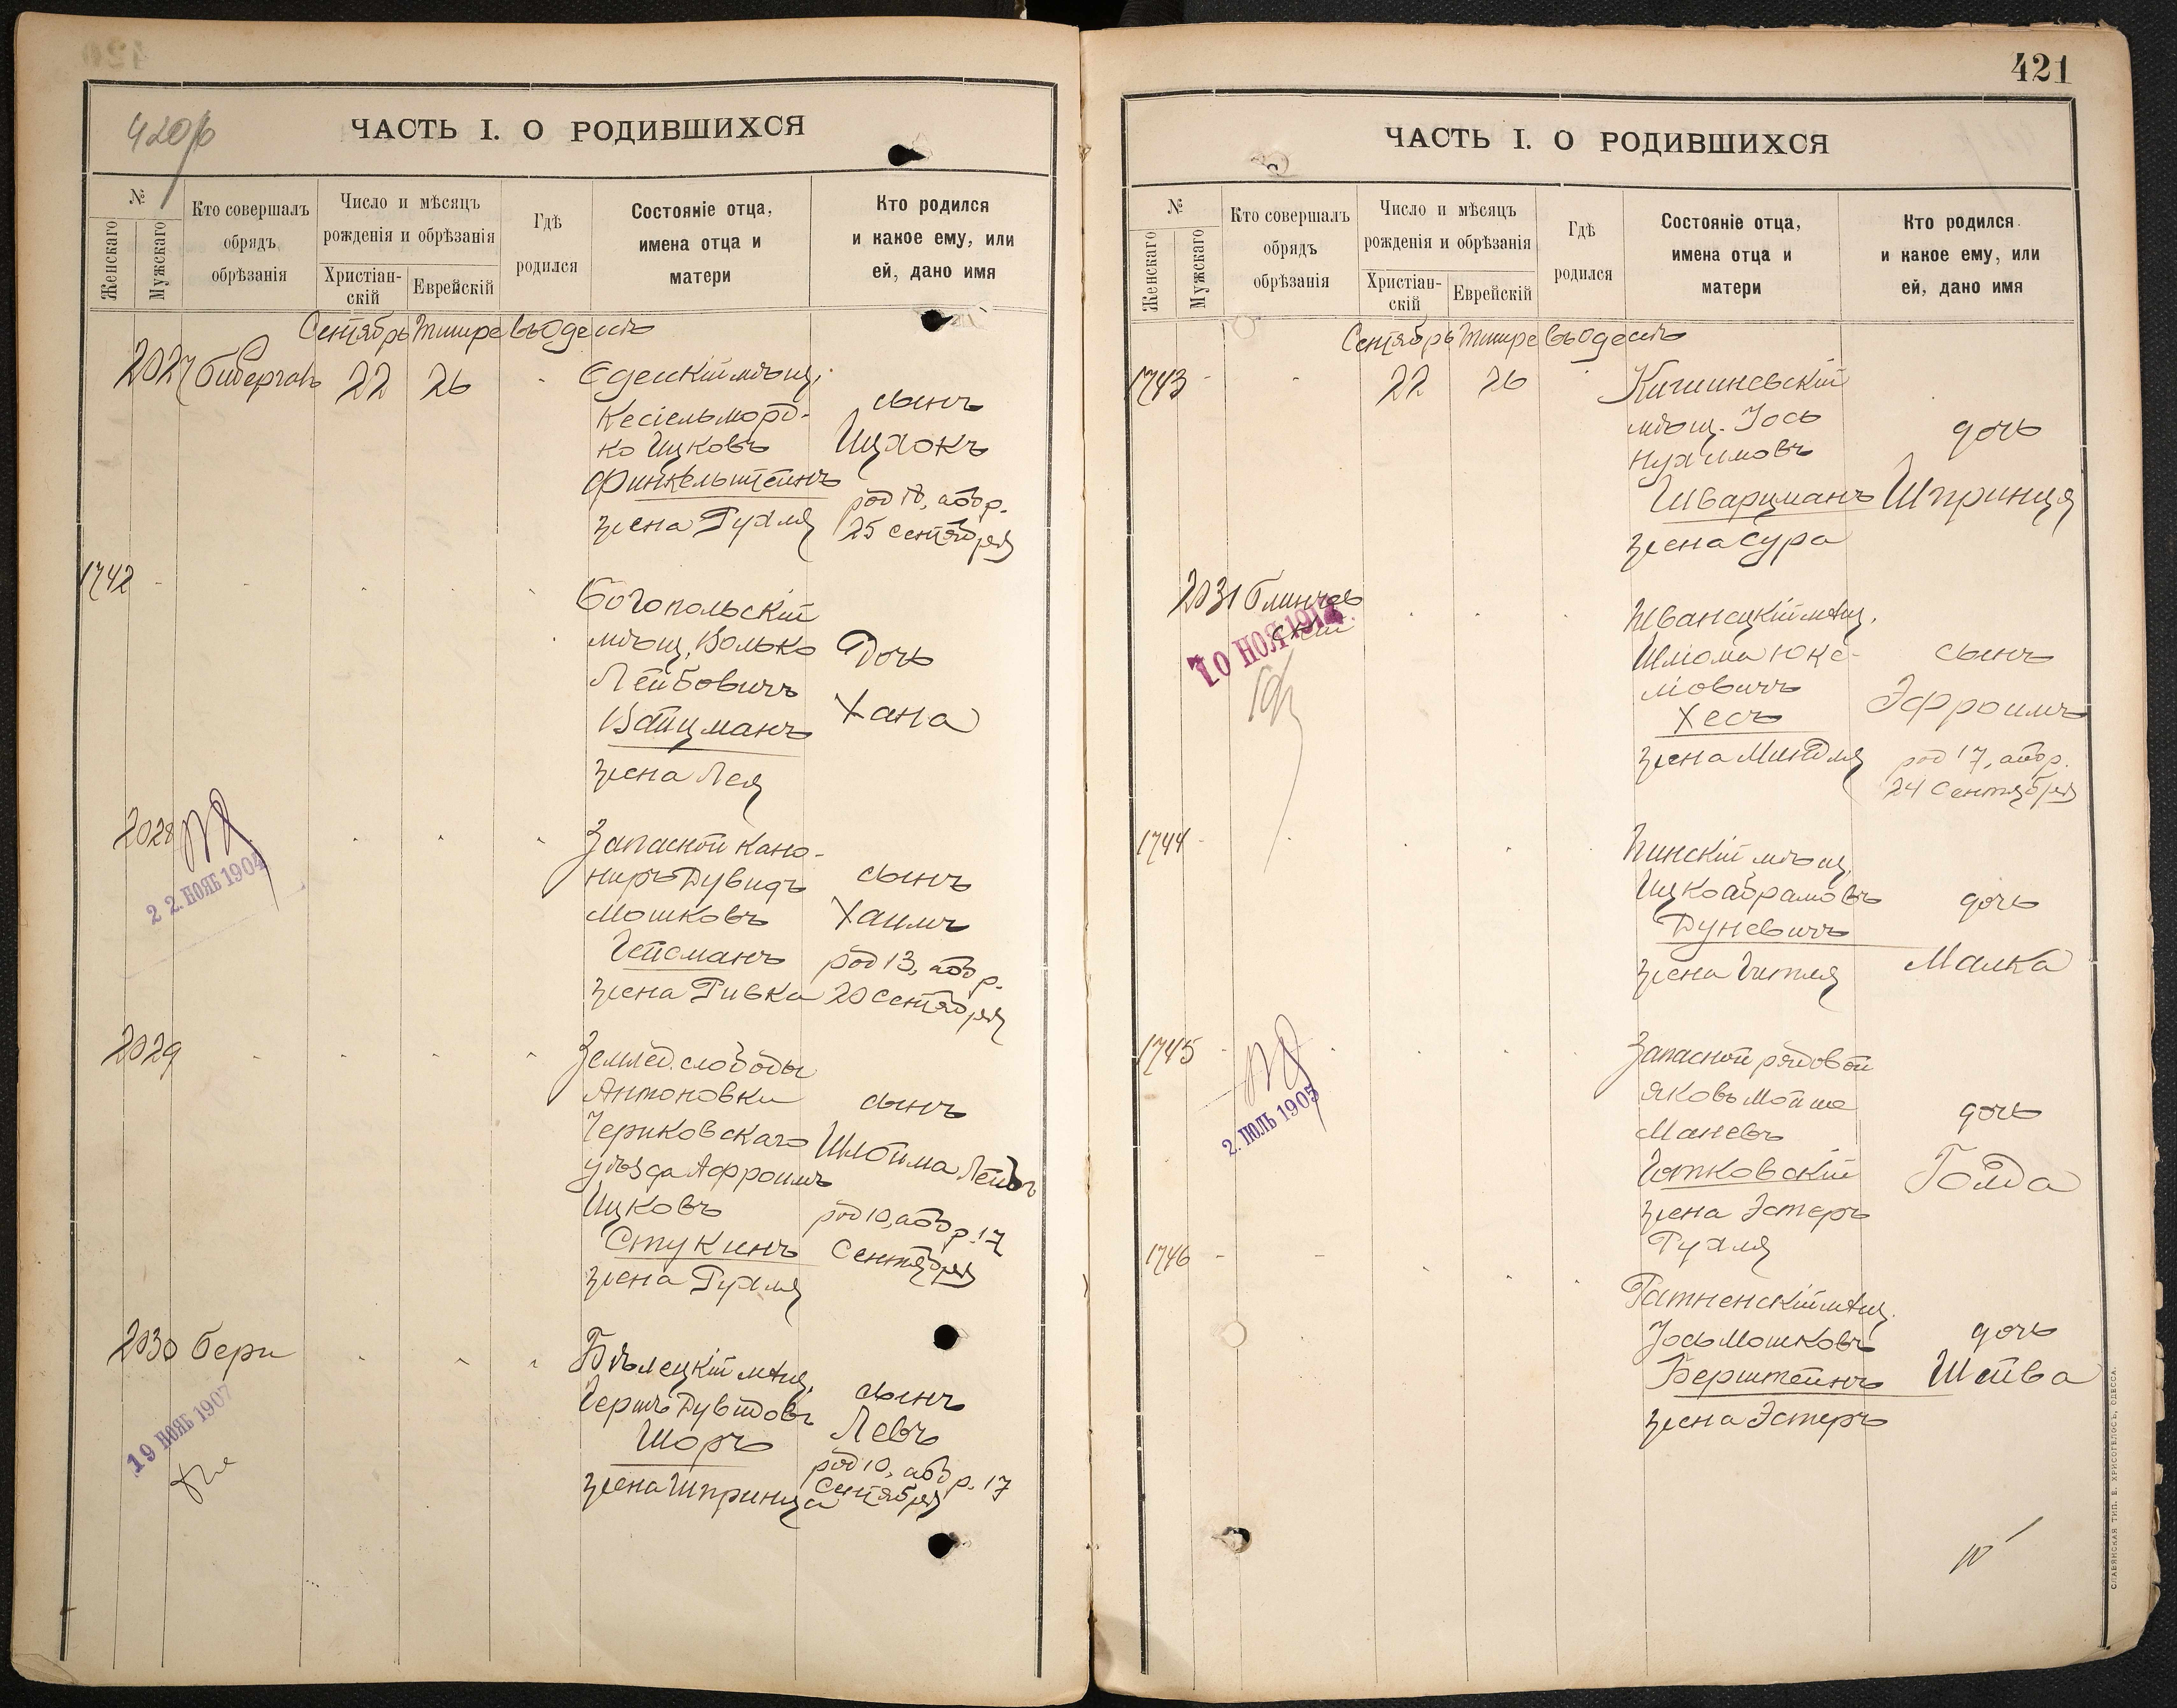 420 об
ЧАСТЬ I. О РОДИВШИХСЯ
№
Женскаго
Мужскаго
Кто совершалъ
обрядъ
обрѣзанія
Число и мѣсяцъ
рожденія и обрѣзанія
Христіан-
скій
Еврейскій
Гдѣ
родился
Состояніе отца,
имена отца и
матери
Кто родился
и какое ему, или
ей, дано имя
Сентябрь Тишре въ Одессѣ
2027
22
26
мѣщ.
Кесіель Морд-
ко Ицковъ
Финкельштейнъ
жена Рухля
сынъ
Ицхокъ
род 18, обр.
25 Сентября
1742
Богопольскій
мѣщ. Волько
Лейбовичъ
Вайцманъ
жена Лея
Дочь
Хана
2028
22. НОЯБ 1904
Запасной кано-
ниръ Дувидъ
Мошковъ
Гейсманъ
жена Ривка
сынъ
Хаимъ
род 13, обр.
20 Сентября
2029
Землед. слободы
Антоновки
Чериковскаго
уѣзда Афроимъ
Ицковъ
Стукинъ
жена Рухля
сынъ
Шлойма Лейбъ
род 10, обр. 17
Сентября
2030
Бери
19 НОЯБ 1907
Бѣлецкій мѣщ.
Гершъ Дувидовъ
Шоръ
жена Шпринца
сынъ
Левъ
род 10, обр. 17
Сентября
421
ЧАСТЬ I. О РОДИВШИХСЯ
№
Женскаго
Мужскаго
Кто совершалъ
обрядъ
обрѣзанія
Число и мѣсяцъ
рожденія и обрѣзанія
Христіан-
скій
Еврейскій
Гдѣ
родился
Состояніе отца,
имена отца и
матери
Кто родился
и какое ему, или
ей, дано имя
Сентябрь Тишре въ Одессѣ
1743
22
26
Кишиневскій
мѣщ. Іось
Нухимовъ
Шварцманъ
жена Сура
дочь
Шпринця
2031
Блинчев
скій
10 НОЯ 1912
Жванецкій мѣщ.
Шлома Юке-
ліовичъ
Хесъ
жена Миндля
сынъ
Эфроимъ
род 17, обр.
24 Сентября
1744
Пинскій мѣщ.
Ицко Абрамовъ
Дуневичъ
жена Гитля
дочь
Малка
1745
2. ІЮЛЬ 1905
Запасной рядовой
Яковъ Мойше
Маневъ
жена Эстеръ
Рухля
дочь
Голда
1746
Ратненскій мѣщ.
Іось Мошковъ
Берштейнъ
жена Эстеръ
дочь
Шейва
СЛАВЯНСКАЯ ТИП. Е. ХРИСОГЕЛОСЪ, ОДЕССА.